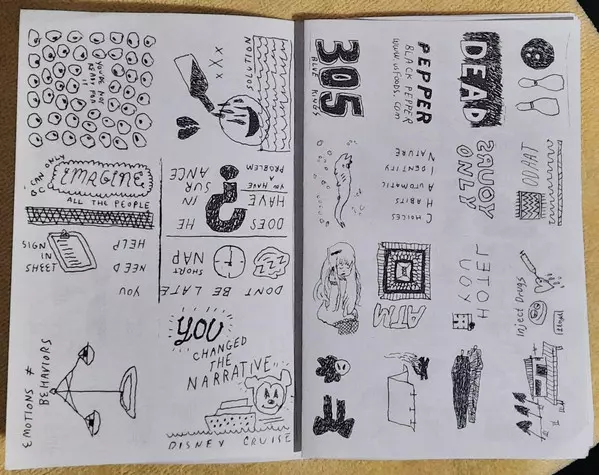 SOLUTION
X X X
YOU HAVE
A
PROBLEM
CAN ONLY
BE
IMAGINE
ALL THE PEOPLE
DOES HE
HAVE IN
SUR
ANCE
?
SIGN
IN
SHEET
YOU
NEED
HELP
DONT BE LATE
SHORT
NAP
ZZZ
YOU
CHANGED
THE
NARRATIVE
DISNEY CRUISE
EMOTIONS ≠
BEHAVIORS
305
BLUE RINGS
PEPPER
BLACK PEPPER
www.usfoods.com
DEAD
NATURE
IDENTITY
AUTOMATIC
HABITS
CHOICES
ONLY
ATM
HOTEL
YOU
Inject Drugs